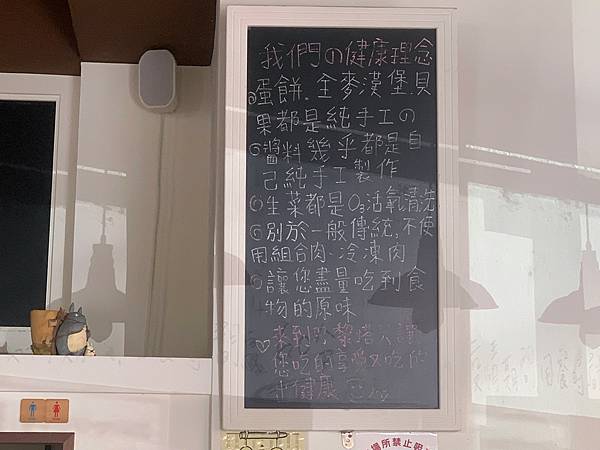 我們の健康理念
◎蛋餅.全麥漢堡.貝
果都是純手工の
◎醬料幾乎都是自
己純手工製作
◎生菜都是O3活氧清洗
◎別於一般傳統,不使
用組合肉.冷凍肉
◎讓您盡量吃到食
物的原味
♡來到
您吃的享受又吃的
健康
場所禁止吸